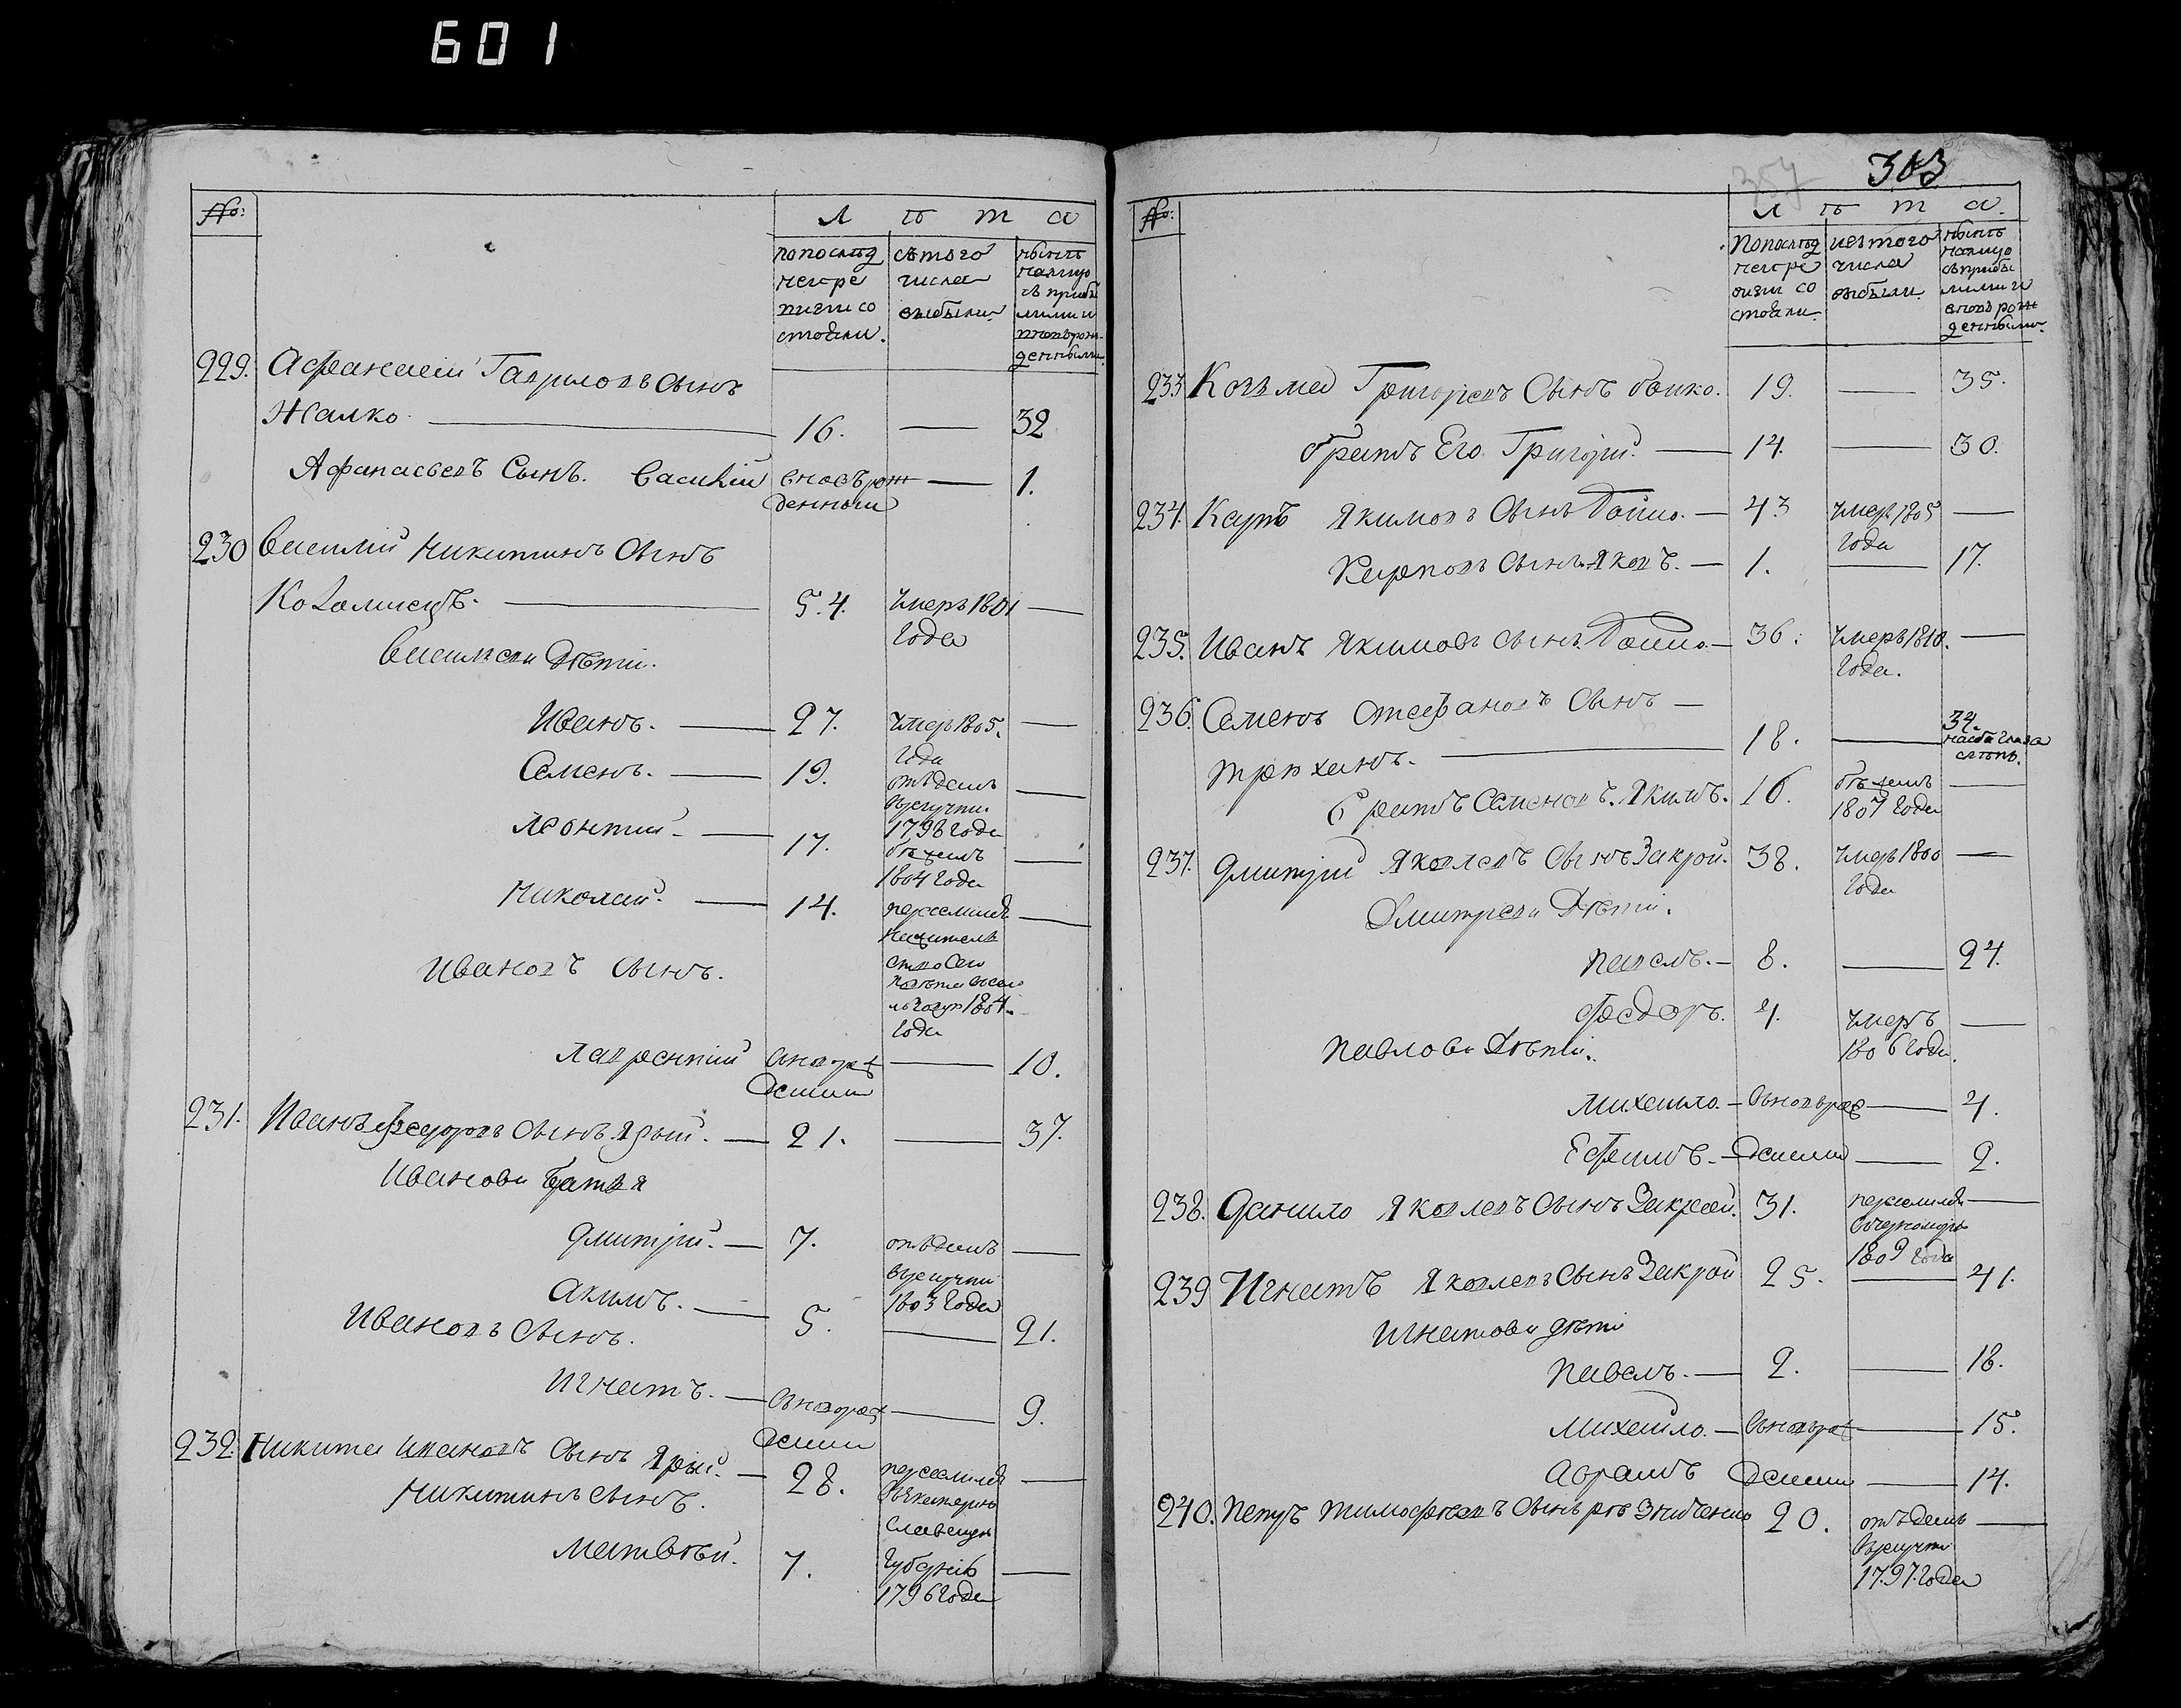 601
№:
Л ѣ т а
попослѣд
ней ре
визии со
стояли.
сътого
числа
выбыли
нынѣ
налицо
съ прибы
лыми и
вновь рож
денными
229. Афанасій Гавриловъ Сынъ
Жалко 16. — 32
Афанасьевъ Сынъ. Василій вновь рож — 1.
денной
230 Василий Никитинъ Сынъ
Коломиецъ. 54. Умеръ 1801 —
года
Василіеви Дѣти.
Иванъ. — 27. умеръ 1805. —
года
Семенъ. — 19. отъданъ —
врекруты
1798 года
Леонтий — 17. бѣжалъ —
1804 года
Николай. — 14. переселился —
Ивановъ Сынъ.
1804.
года
Лаврентий вновь рож — 10.
денни
231. Иванъ Федоровъ Сынъ Ярый. — 21. — 37.
Иванови Братья
Дмитрий. — 7. отъданъ —
врекруты
1803 года
Акимъ. — 5. — 21.
Ивановъ Сынъ.
Игнатъ. — вновь рож — 9.
денни
232. Никита Ивановъ Сынъ Ярый. — 28. переселился —
въ Екатерино
Никитинъ Сынъ.
славскую
Матвѣй. 7. губернію —
1796 года
303
357
№:
Л ѣ т а.
Попослѣд
ней ре
визии со
стояли
изътого
числа
выбыли.
нынѣ
налицо
съ прибы
лыми и
вновь рож
денными.
233 Козьма Григорьевъ Сынъ Бойко. 19. — 35.
братъ Его Григорий. — 14. — 30.
234. Карпъ Якимовъ Сынъ Бойко. — 43 умеръ 1805 —
года
Карповъ Сынъ Яковъ. — 1. — 17.
235. Иванъ Якимовъ Сынъ Бойко. — 36. Умеръ 1810. —
Года.
236. Семенъ Стефановъ Сынъ —
34.
на оба глаза
слѣпъ.
18. —
Братъ Семеновъ. Якимъ. 16. бѣжалъ —
1807 Года
237. Дмитрий Яковлевъ Сынъ Закрой. 38. Умеръ 1800 —
Года
Дмитреви Дѣти.
Павелъ. — 8. — 24.
Федоръ. 4. умеръ —
1806 года.
Павлови Дѣти.
Михайло. — вновь рож — 4.
Ефимъ. — денни — 2.
238. Данило Яковлевъ Сынъ Закрой. 31. переселился —
1809 года
239 Игнатъ Яковлевъ Сынъ Закрой 25. — 41.
Игнатови дѣти
Павелъ. — 2. — 18.
Михайло. — вновь рож — 15.
Абрамъ денни — 14.
240. Петръ Тимофѣевъ Сынъ 20. отъданъ —
врекруты
1797. года